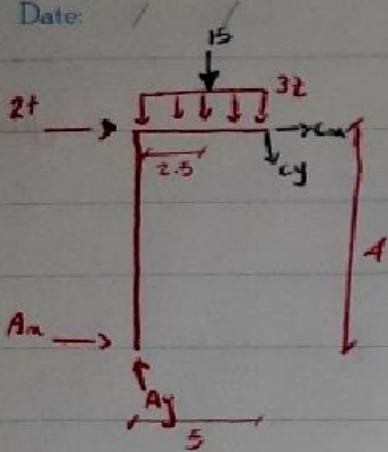 Date: / /
15
3t
2t
Cx
2.5
Cy
4
Ax
Ay
5